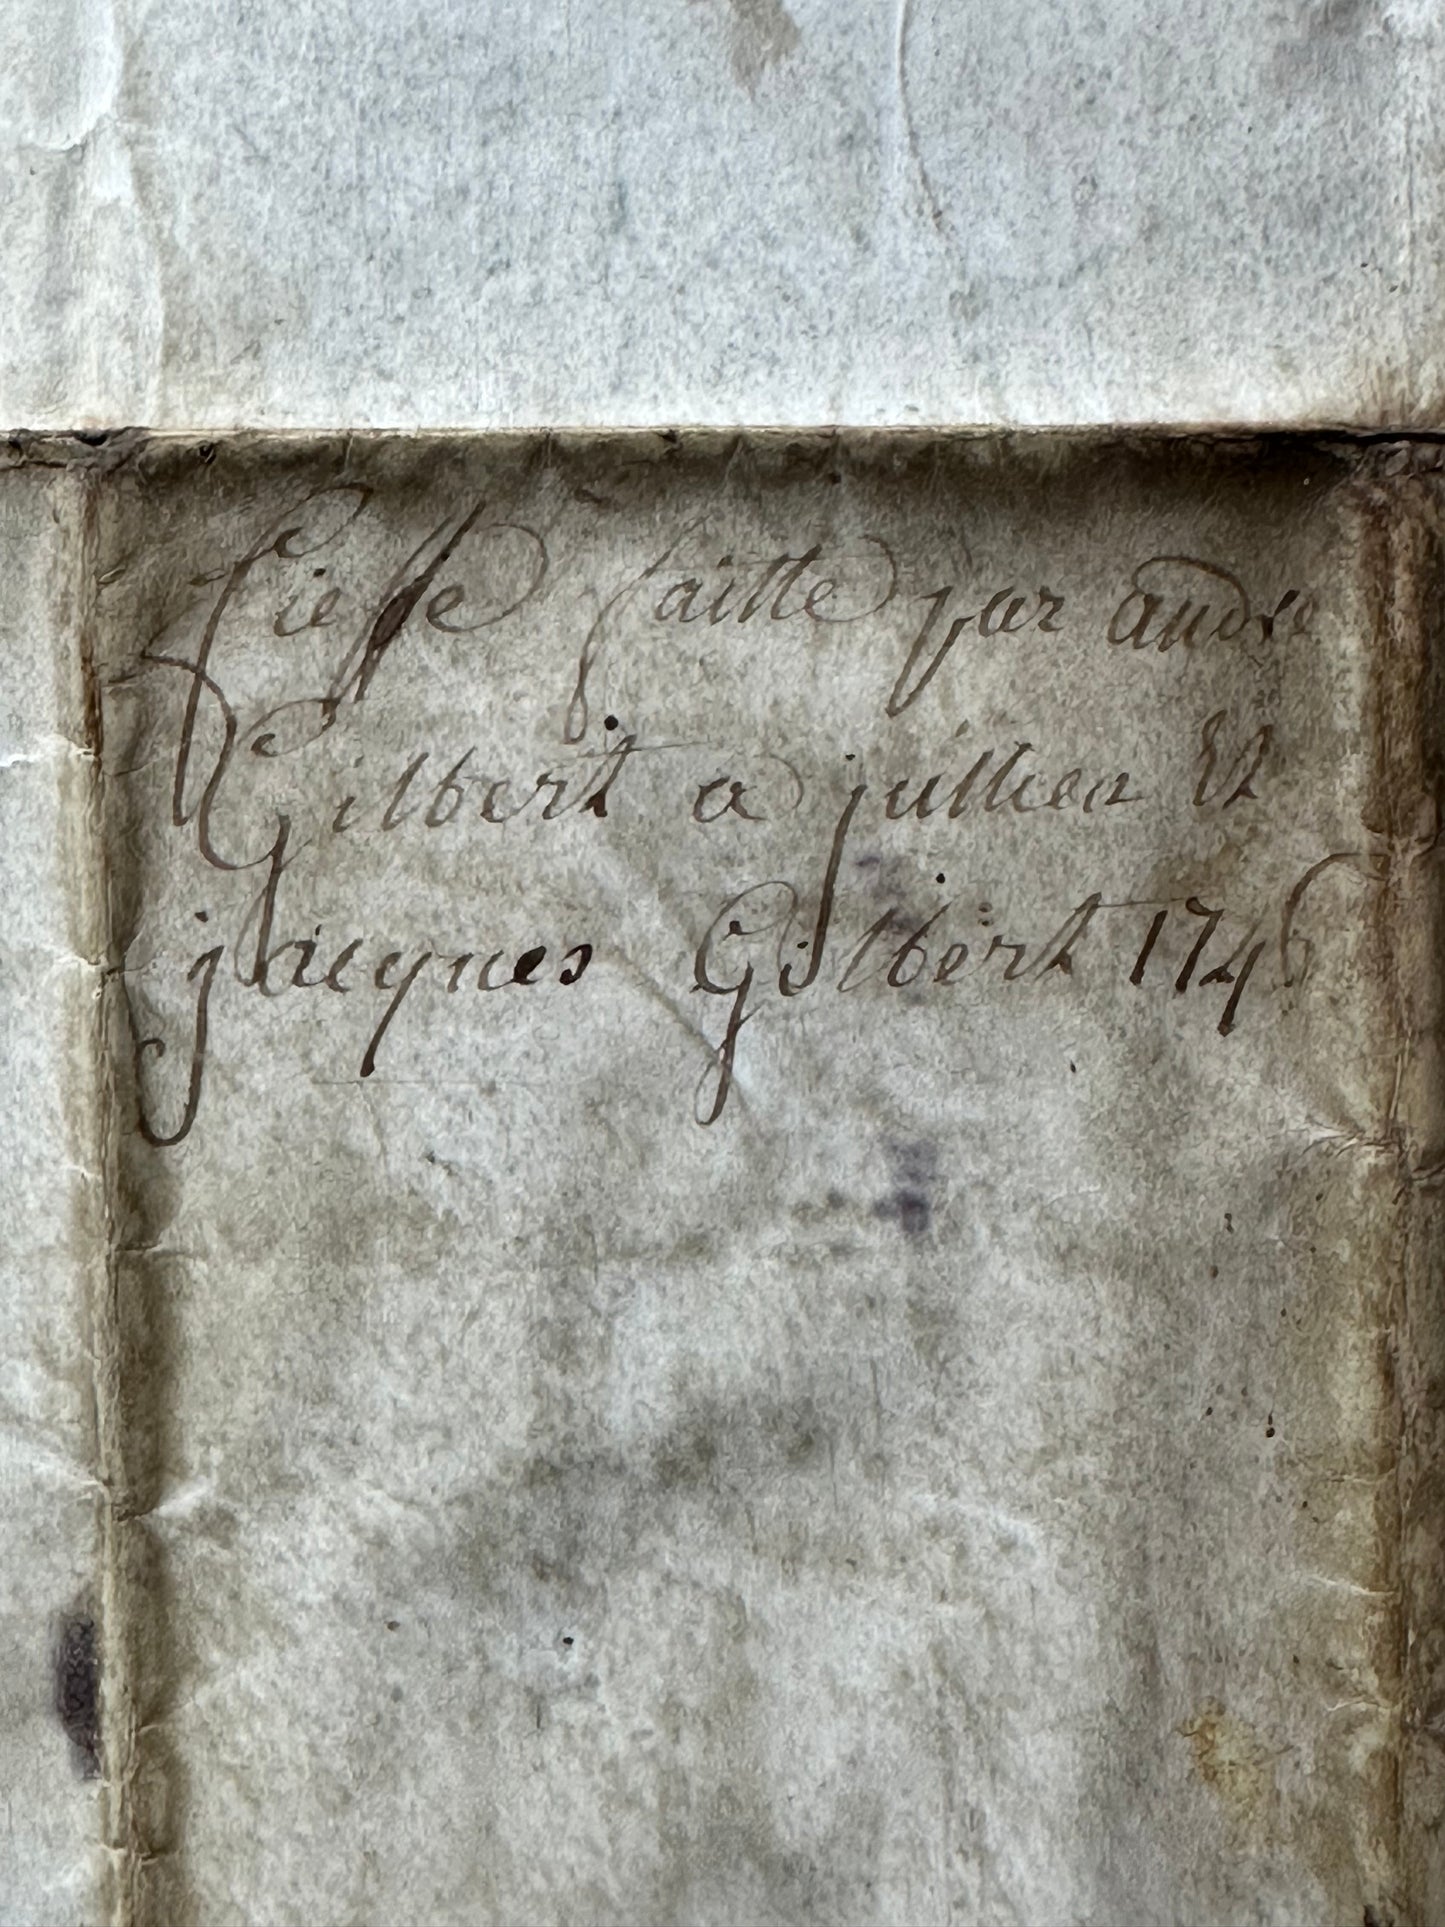 Fieffe faitte par andre
Gilbert a jullien Et
jacques Gilbert 1746